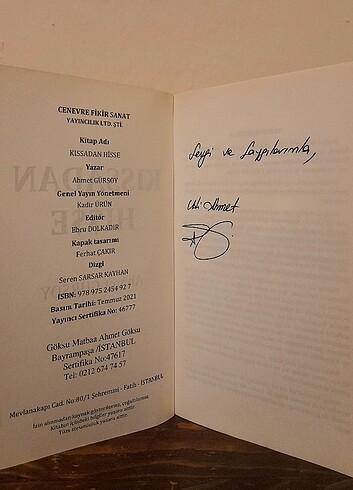 CENEVRE FİKİR SANAT
YAYINCILIK LTD. ŞTİ.
Kitap Adı
KISSADAN HİSSE
Yazar
Ahmet GÜRSOY
Genel Yayın Yönetmeni
Kadir ÜRÜN
Editör
Ebru DOLKADIR
Kapak tasarımı
Ferhat ÇAKIR
Dizgi
Seren SARSAR KAYHAN
ISBN: 978 975 2454 92 7
Basım Tarihi: Temmuz 2021
Yayıncı Sertifika No: 46777
Göksu Matbaa Ahmet Göksu
Bayrampaşa /İSTANBUL
Sertifika No:47617
Tel: 0212 674 74 57
Mevlanakapı Cad. No:80/1 Şehremini - Fatih - İSTANBUL
İzin alınmadan kaynak gösterilemez, çoğaltılamaz.
Kitabın içindeki bilgiler yazara aittir.
Tüm sorumluluk yazara aittir.
Sevgi ve Saygılarımla,
Ahmet